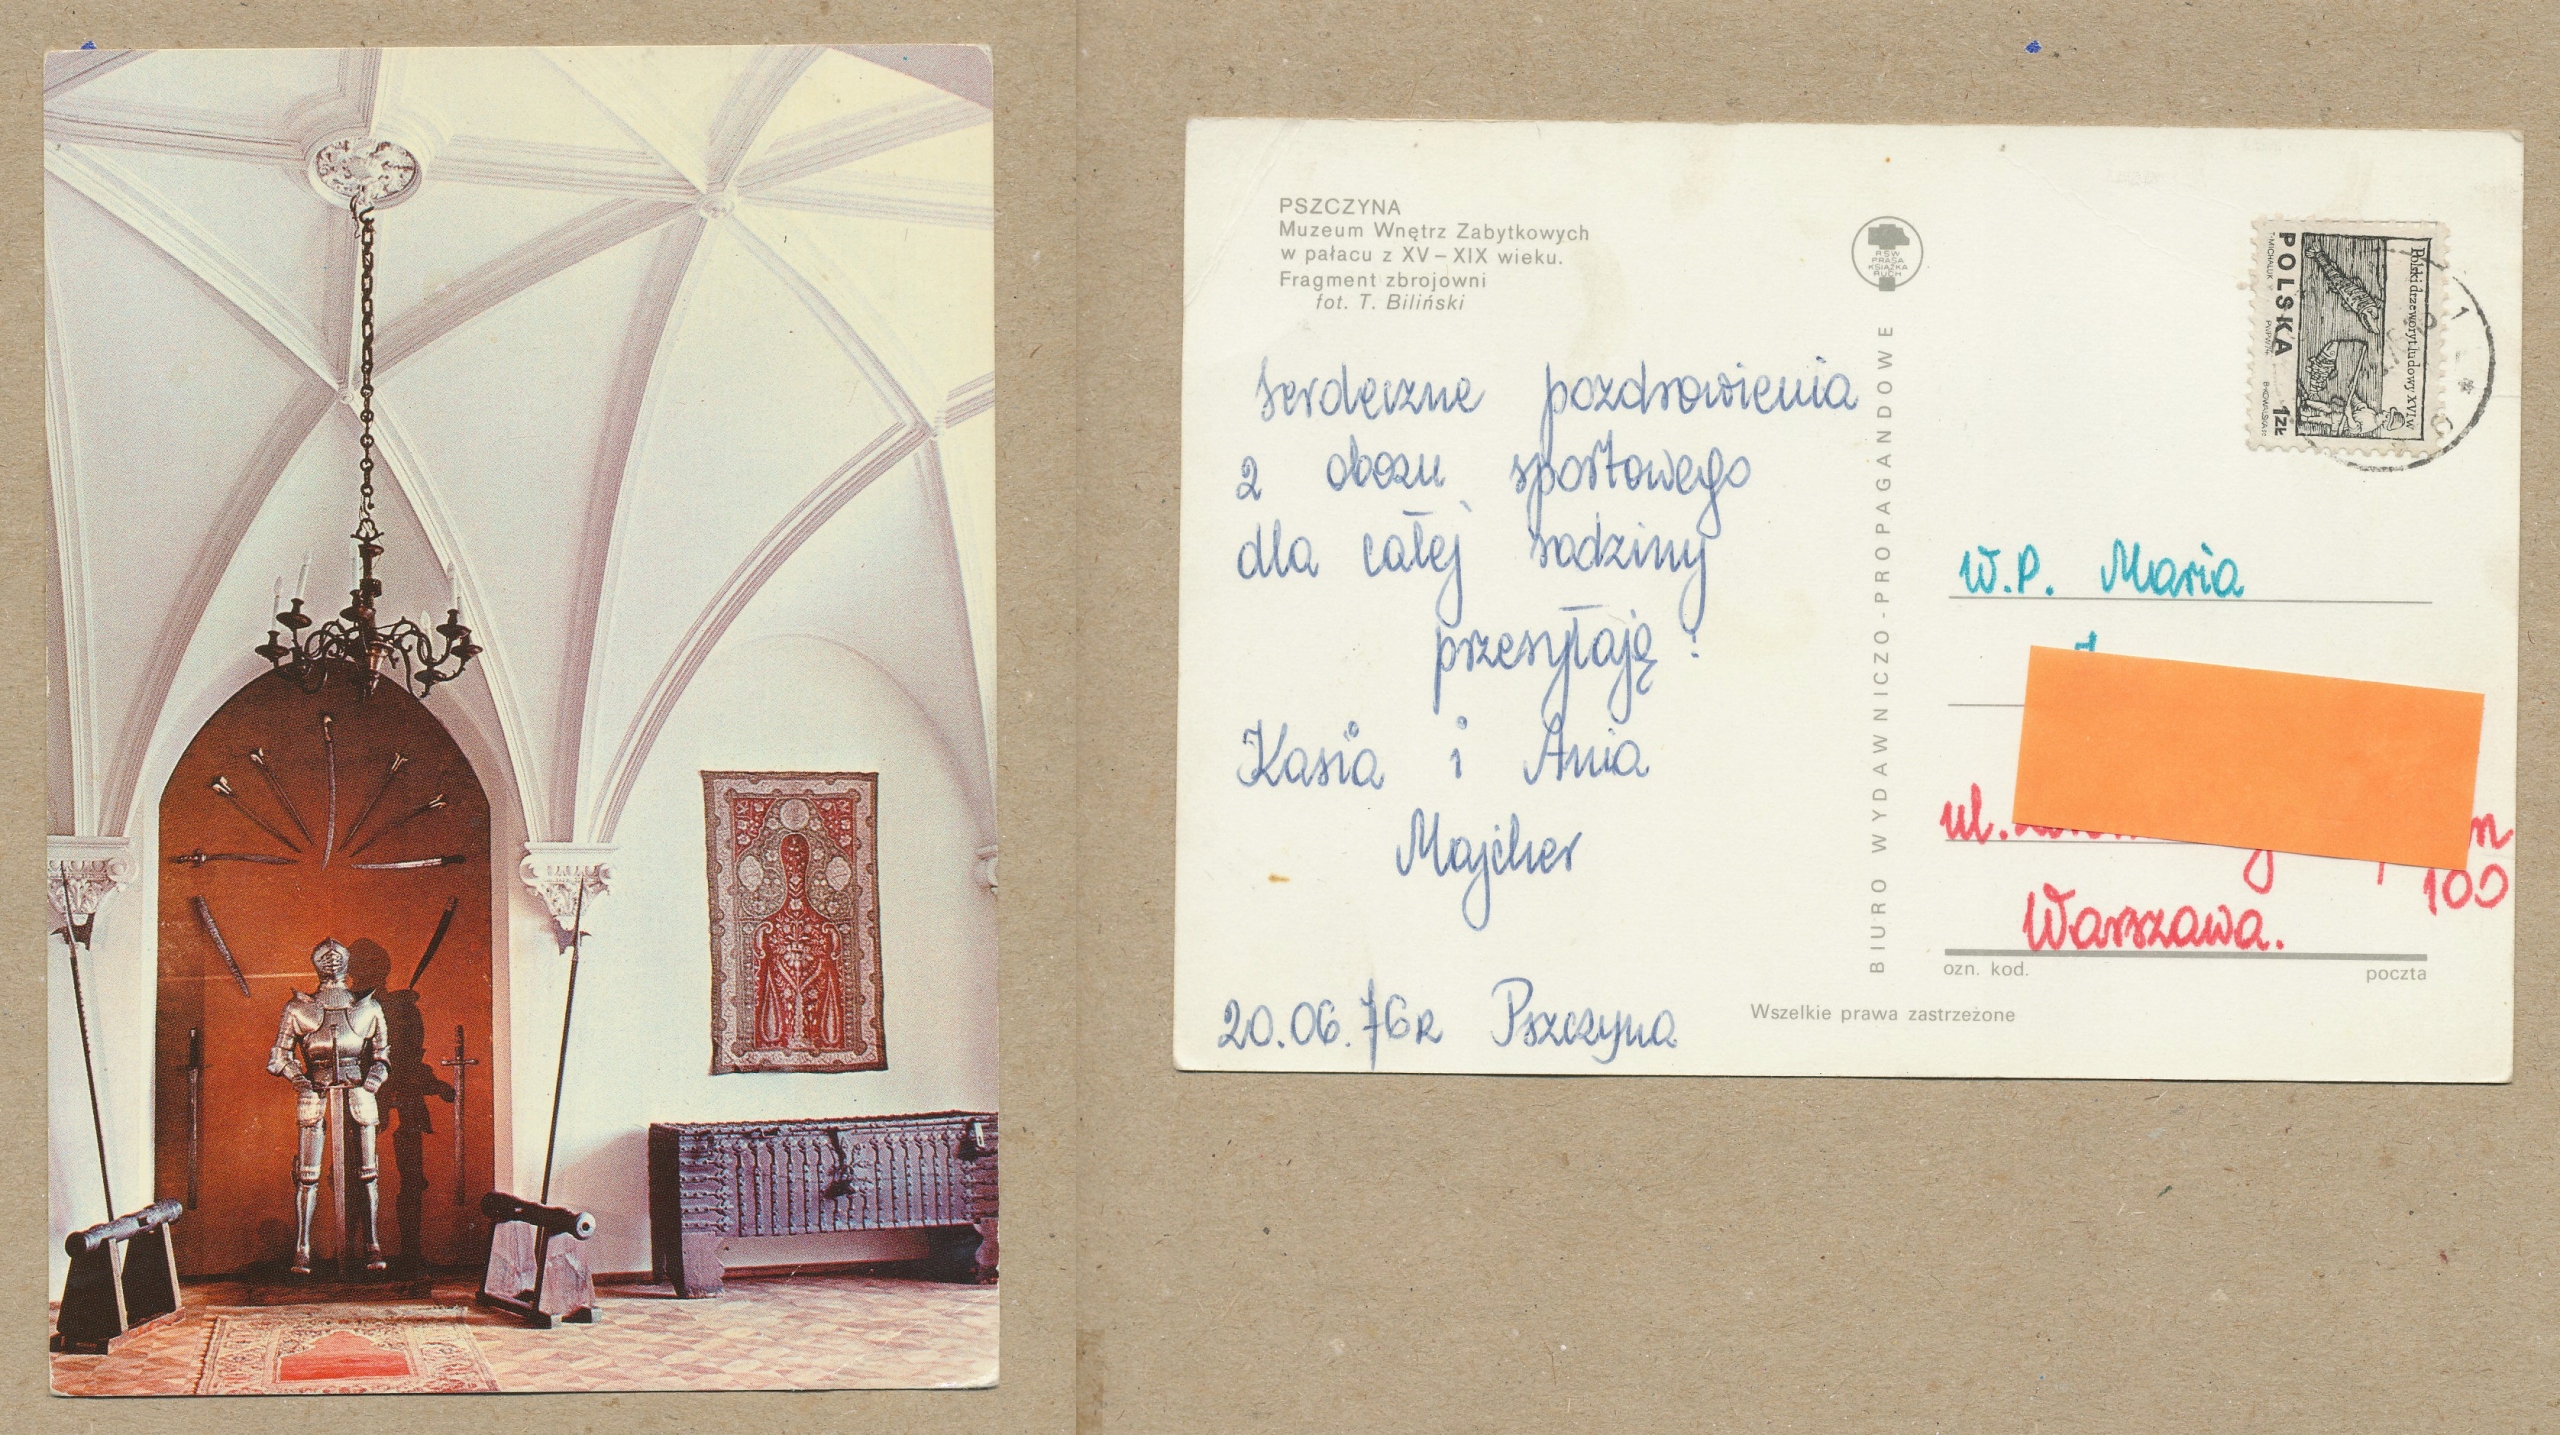 PSZCZYNA
Muzeum Wnętrz Zabytkowych
w pałacu z XV – XIX wieku.
Fragment zbrojowni
fot. T. Biliński
Serdeczne pozdrowienia
z obozu sportowego
dla całej rodziny
przesyłają:
Kasia i Ania
Majcher
20.06.76r Pszczyna
RSW
PRASA
KSIĄŻKA
RUCH
BIURO WYDAWNICZO-PROPAGANDOWE
Polski drzeworyt ludowy XVI w
POLSKA
1 ZŁ
W.P. Maria
ul.
100
Warszawa.
ozn. kod.
poczta
Wszelkie prawa zastrzeżone